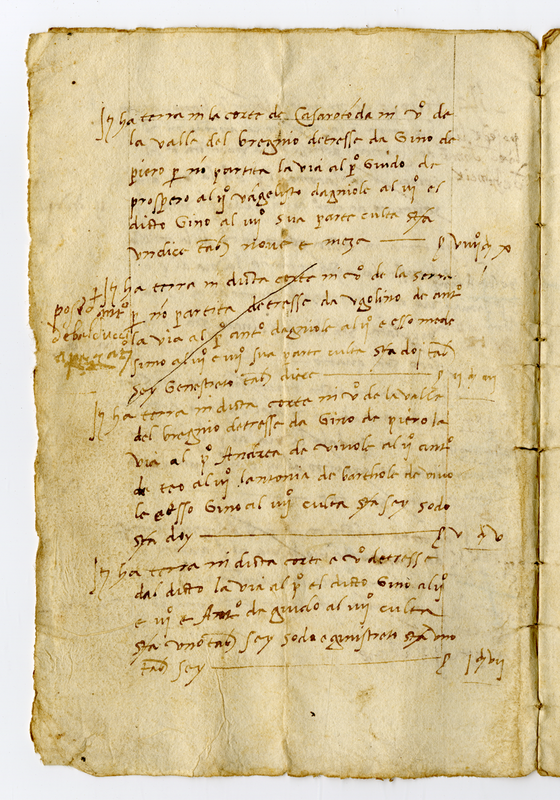 It ha terra in la corte de Casarotōda in vo de
la valle del bregnio detresse da Gino de
piero p nō partita la via al po Guido de
prospero al ijo vāgelista dagniole al iijo el
dicto Gino al iiijo sua parte culta sta
undice tab nove e meza
It ha terra in dicta corte in vo de la serra
p nō partita detresse da Ugolino de anto
la via al po anto dagniole al ijo e esso mede
simo al iijo e iiijo sua parte culta sta doj tab
sey Genestreto tab diece
posto
anto
de balducci
It ha terra in dicta corte in vo de la valle
del bregnio detresse da Gino de piero la
via al po Andrea de vivole al ijo anto
de teo al iijo lantonia de barthole de vivo
le esso Gino al iiijo culta sta sey sodo
sta doy
It ha terra in dicta corte e vo detresse
dal dicto la via al po el dicto Gino al ijo
e iijo e Anto de guido al iiijo culta
sta uno tab sey sodo e ginistreto sta uno
tab sey